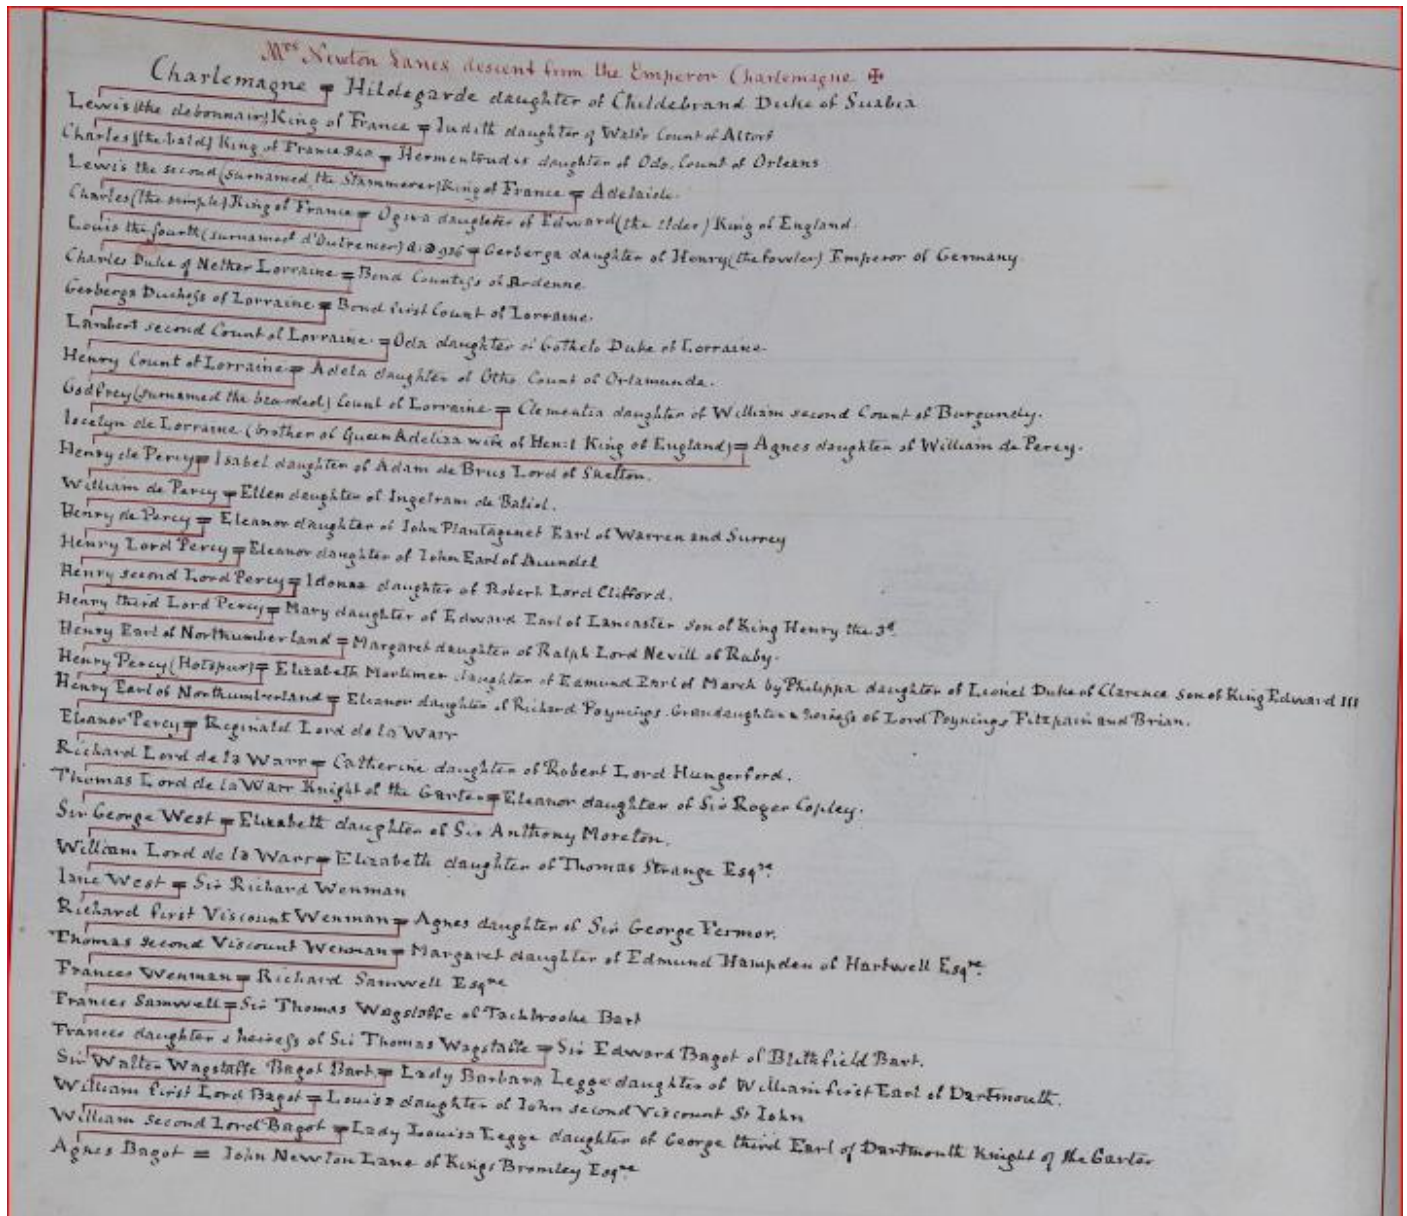 Mrs Newton Lanes descent from the Emperor Charlemagne ✠
Charlemagne = Hildegarde daughter of Childebrand Duke of Suabia
Lewis (the debonnair) King of France = Judith daughter of Count of Altorf
Charles (the bald) King of France 840 = Hermentrudis daughter of Odo, Count of Orleans
Lewis the second (surnamed, the Stammerer) King of France = Adelaide.
Charles (the simple) King of France = Ogiva daughter of Edward (the elder) King of England.
Louis the fourth (surnamed d'Outremer) A.D 936 = Gerberga daughter of Henry (the fowler) Emperor of Germany
Charles Duke of Nether Lorraine = Bond Countess of Ardenne
Gerberga Duchess of Lorraine = Bond first Count of Lorraine.
Lambert second Count of Lorraine = Oda daughter of Gothelo Duke of Lorraine
Henry Count of Lorraine = Adela daughter of Otho Count of Orlamunda.
Godfrey (surnamed the bearded) Count of Lorraine = Clementia daughter of William second Count of Burgundy.
Iocelyn de Lorraine (brother of Queen Adeliza wife of Hen:1 King of England) = Agnes daughter of William de Percy.
Henry de Percy = Isabel daughter of Adam de Brus Lord of Skelton.
William de Percy = Ellen daughter of Ingelram de Baliol.
Henry de Percy = Eleanor daughter of Iohn Plantagenet Earl of Warren and Surrey
Henry Lord Percy = Eleanor daughter of Iohn Earl of Arundel
Henry second Lord Percy = Idonea daughter of Robert Lord Clifford.
Henry third Lord Percy = Mary daughter of Edward Earl of Lancaster son of King Henry the 3d.
Henry Earl of Northumberland = Margaret daughter of Ralph Lord Nevill of Raby.
Henry Percy (Hotspur) = Elizabeth Mortimer daughter of Edmund Earl of March by Philippa daughter of Lionel Duke of Clarence son of King Edward III
Henry Earl of Northumberland = Eleanor daughter of Richard Poynings. Grandaughter & heiress of Lord Poynings Fitzpain and Brian.
Eleanor Percy = Reginald Lord de la Warr
Richard Lord de la Warr = Catherine daughter of Robert Lord Hungerford.
Thomas Lord de la Warr Knight of the Garter = Eleanor daughter of Sir Roger Copley.
Sir George West = Elizabeth daughter of Sir Anthony Moreton.
William Lord de la Warr = Elizabeth daughter of Thomas Strange Esqre.
Iane West = Sir Richard Wenman
Richard first Viscount Wenman = Agnes daughter of Sir George Fermor.
Thomas second Viscount Wenman = Margaret daughter of Edmund Hampden of Hartwell Esqre.
Frances Wenman = Richard Samwell Esqre
Frances Samwell = Sir Thomas Wagstaffe of Tachbrooke Bart
Frances daughter & heiress of Sir Thomas Wagstaffe = Sir Edward Bagot of Blithfield Bart.
Sir Walter Wagstaffe Bagot Bart. = Lady Barbara Legge daughter of William first Earl of Dartmouth.
William first Lord Bagot = Louisa daughter of Iohn second Viscount St Iohn
William second Lord Bagot = Lady Louisa Legge daughter of George third Earl of Dartmouth Knight of the Garter
Agnes Bagot = Iohn Newton Lane of Kings Bromley Esqre.